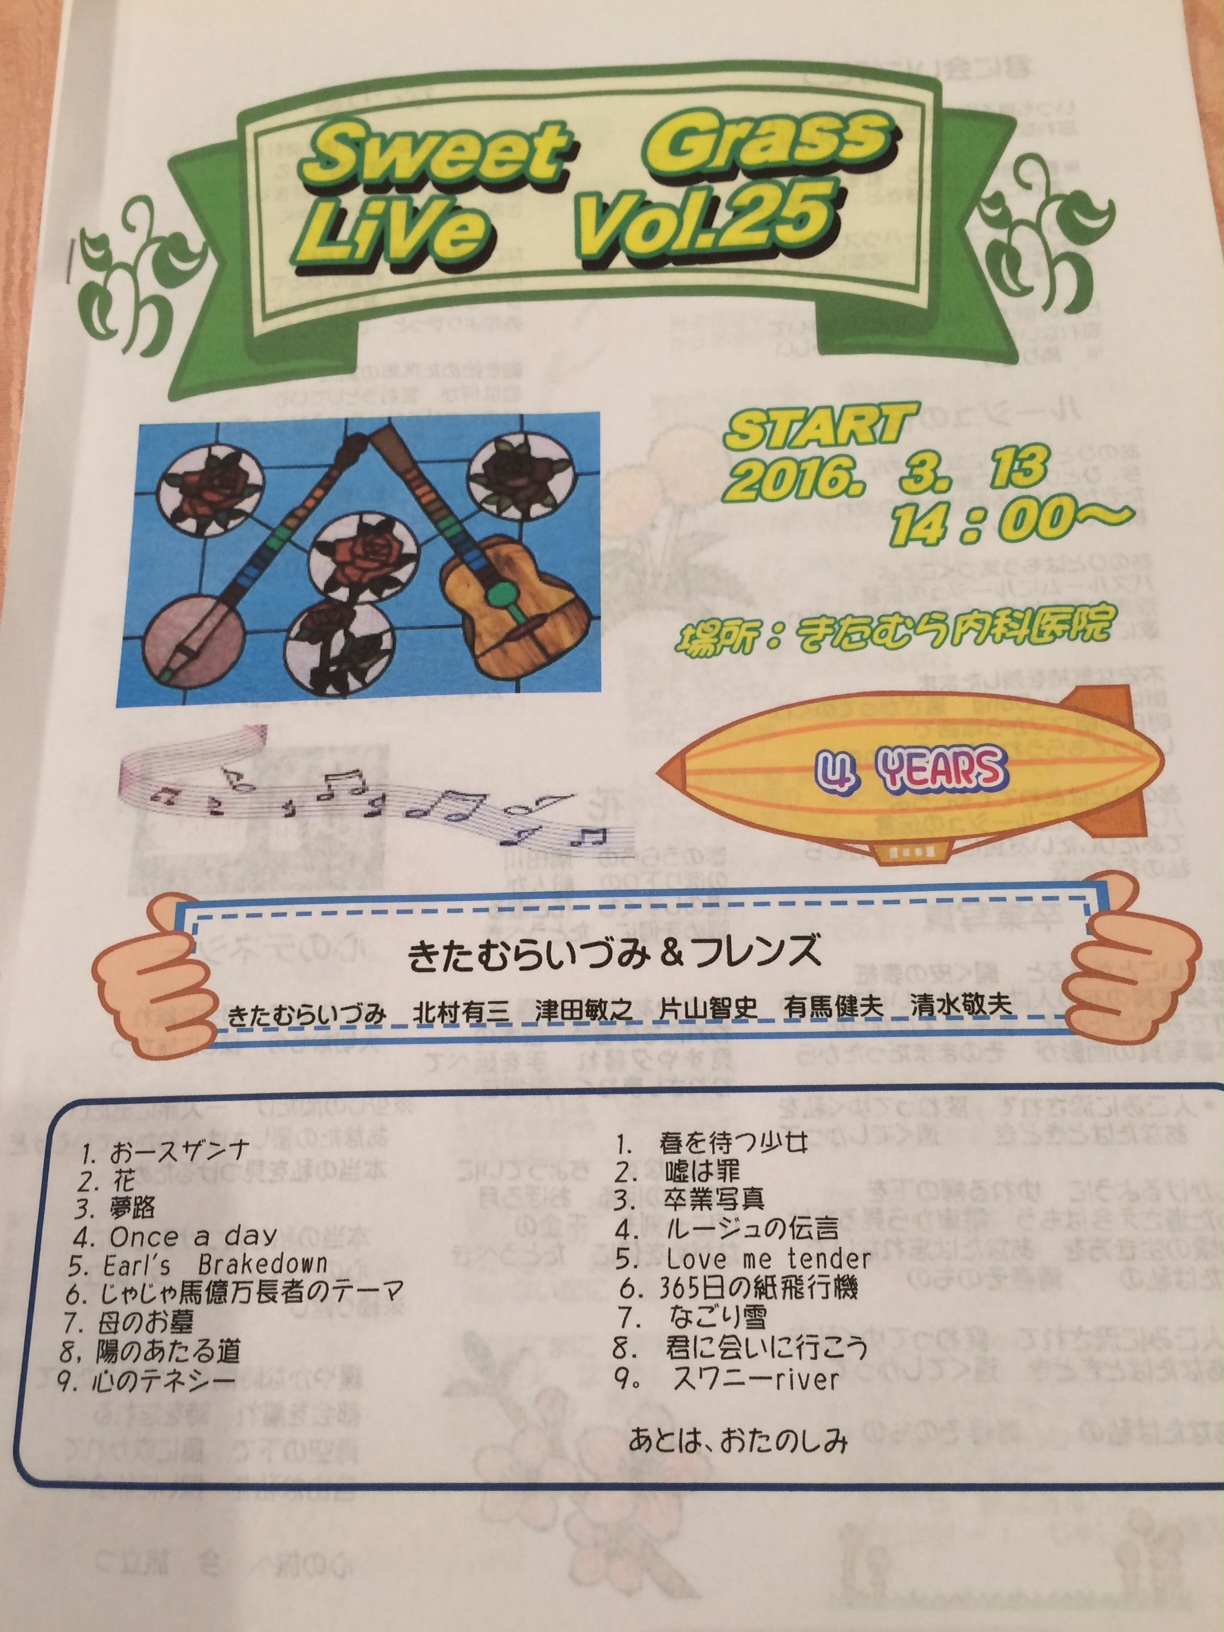 Sweet Grass
LiVe Vol.25
START
2016. 3. 13
14：00〜
場所：きたむら内科医院
4 YEARS
きたむらいづみ＆フレンズ
きたむらいづみ 北村有三 津田敏之 片山智史 有馬健夫 清水敬夫
1. おースザンナ
2. 花
3. 夢路
4. Once a day
5. Earl's Brakedown
6. じゃじゃ馬億万長者のテーマ
7. 母のお墓
8, 陽のあたる道
9. 心のテネシー
1. 春を待つ少女
2. 嘘は罪
3. 卒業写真
4. ルージュの伝言
5. Love me tender
6. 365日の紙飛行機
7. なごり雪
8. 君に会いに行こう
9。 スワニーriver
あとは、おたのしみ